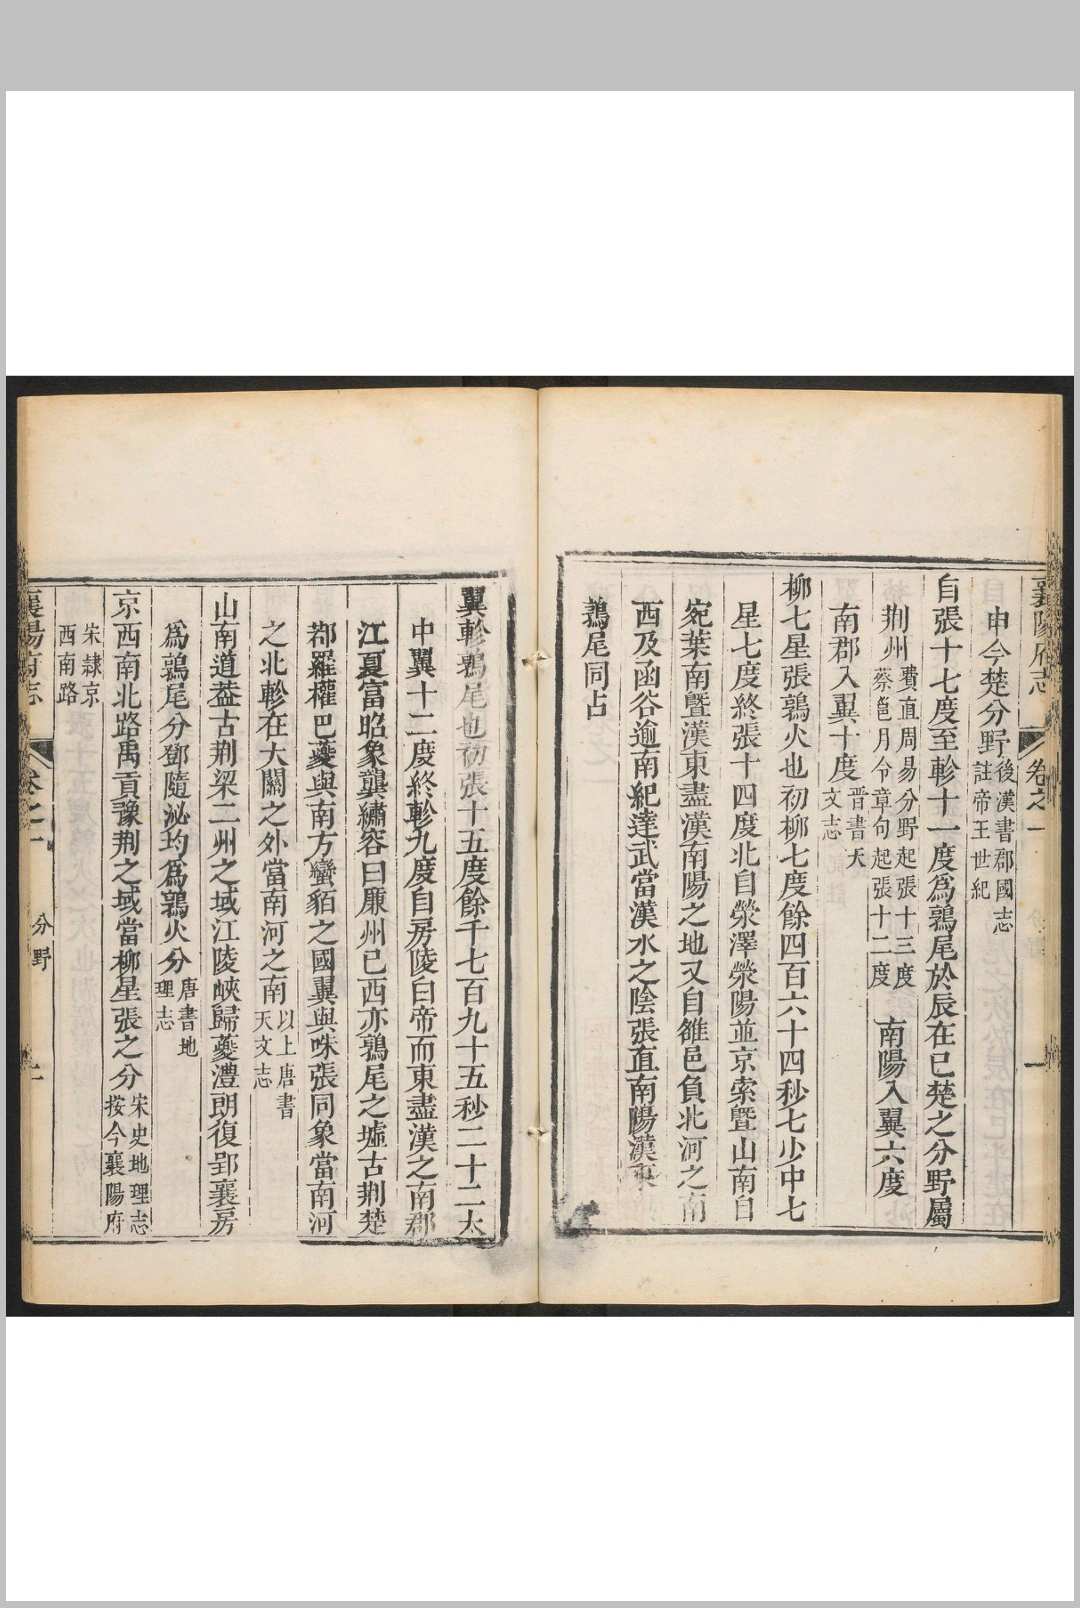 襄陽府志 卷之一 一
申今楚分野後漢書郡國志
註帝王世紀
自張十七度至軫十一度爲鶉尾於辰在巳楚之分野屬
荆州費直周易分野起張十三度
蔡邕月令章句起張十二度 南陽入翼六度
南郡入翼十度晉書天
文志
柳七星張鶉火也初柳七度餘四百六十四秒七少中七
星七度終張十四度北自滎澤滎陽並京索暨山南自
宛葉南暨漢東盡漢南陽之地又自雒邑負北河之南
西及函谷逾南紀達武當漢水之陰張直南陽漢東
鶉尾同占
翼軫鶉尾也初張十五度餘千七百九十五秒二十二太
中翼十二度終軫九度自房陵白帝而東盡漢之南郡
江夏富昭象龔繡容白廉州已西亦鶉尾之墟古荆楚
鄀羅權巴夔與南方蠻貊之國翼與咮張同象當南河
之北軫在天關之外當南河之南以上唐書
天文志
山南道葢古荆梁二州之域江陵峽歸夔澧朗復郢襄房
爲鶉尾分鄧隨泌均爲鶉火分唐書地
理志
京西南北路禹貢豫荆之域當柳星張之分宋史地理志
按今襄陽府
宋隷京
西南路
襄陽府志 卷之一 分野 二